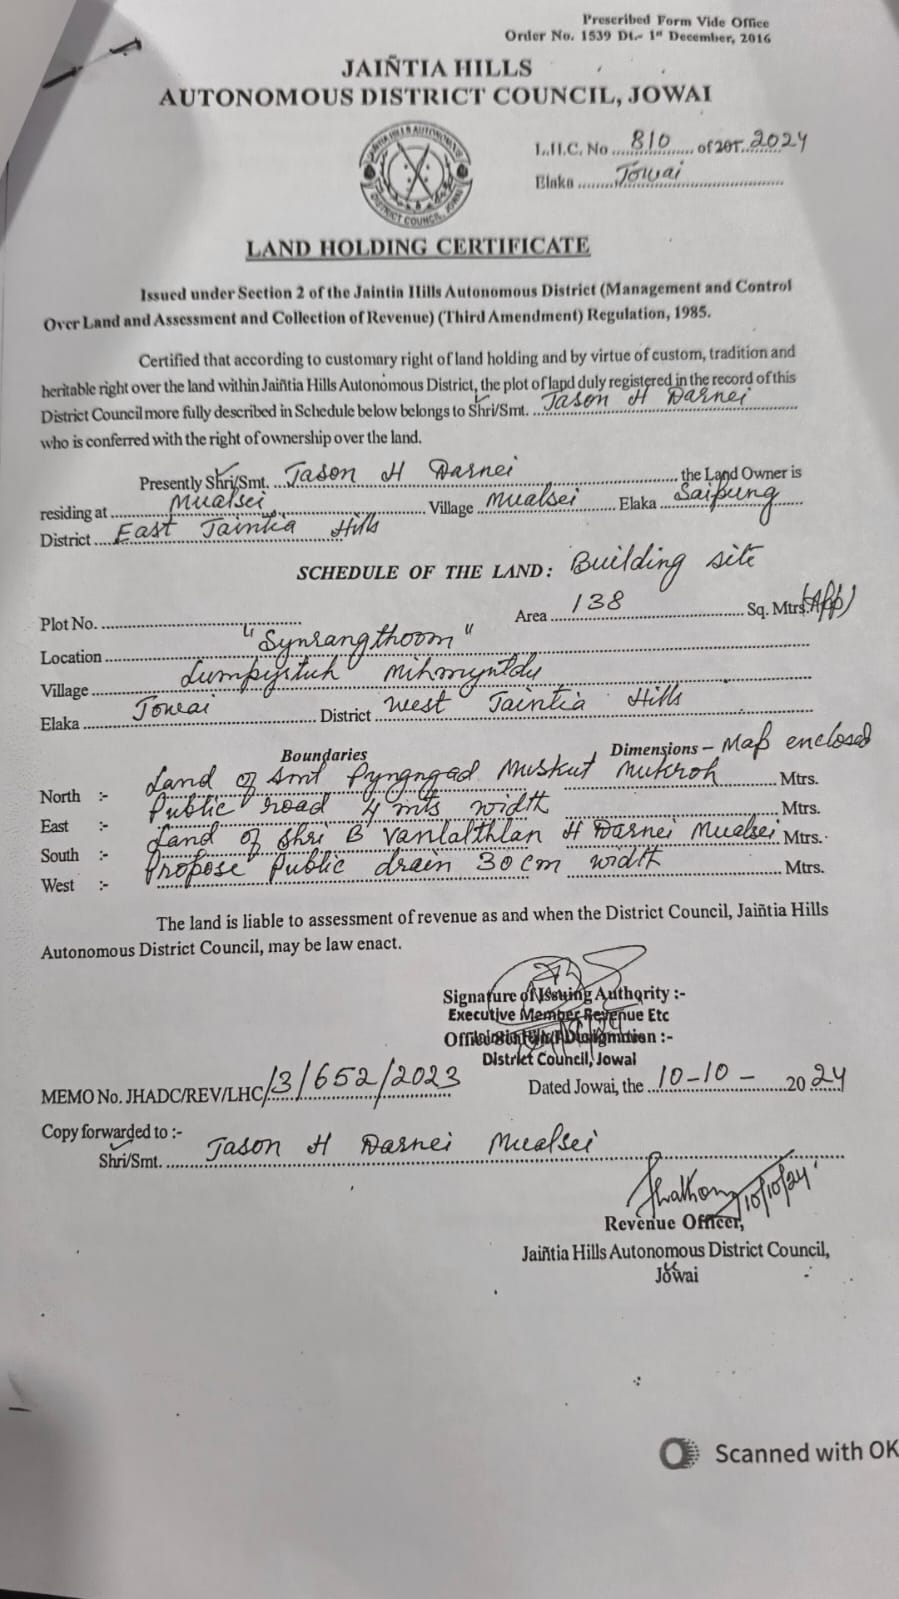 Prescribed Form Vide Office
Order No. 1539 Dt.- 1st December, 2016
JAIÑTIA HILLS
AUTONOMOUS DISTRICT COUNCIL, JOWAI
L.H.C. No ... 810 ... of 201... 2024
Elaka ... Jowai
JAIÑTIA HILLS AUTONOMOUS
DISTRICT COUNCIL, JOWAI
LAND HOLDING CERTIFICATE
Issued under Section 2 of the Jaintia Hills Autonomous District (Management and Control
Over Land and Assessment and Collection of Revenue) (Third Amendment) Regulation, 1985.
Certified that according to customary right of land holding and by virtue of custom, tradition and
heritable right over the land within Jaiñtia Hills Autonomous District, the plot of land duly registered in the record of this
District Council more fully described in Schedule below belongs to Shri/Smt. Jason H Darnei
who is conferred with the right of ownership over the land.
Presently Shri/Smt. Jason H Darnei the Land Owner is
residing at Mualsei Village Mualsei Elaka Saipung
District East Jaintia Hills
SCHEDULE OF THE LAND: Building site
Plot No. ... Area 138 Sq. Mtrs. (App)
Location "Synrangthoom"
Village Lumpyrtuh Mihmyntdu
Elaka Jowai District West Jaintia Hills
Boundaries Dimensions – Map enclosed
North :- Land of Smt Pyngngad Muskut Mukroh Mtrs.
East :- Public road 4 mts width Mtrs.
South :- Land of Shri B Vanlalthlan H Darnei Mualsei Mtrs.
West :- Propose Public drain 30 cm width Mtrs.
The land is liable to assessment of revenue as and when the District Council, Jaiñtia Hills
Autonomous District Council, may be law enact.
Signature of Issuing Authority :-
Executive Member Revenue Etc
District Council, Jowai
MEMO No. JHADC/REV/LHC/3/652/2023 Dated Jowai, the 10-10- 2024
Copy forwarded to :-
Shri/Smt. Jason H Darnei Mualsei
10/10/24
Revenue Officer,
Jaiñtia Hills Autonomous District Council,
Jowai
Scanned with OK